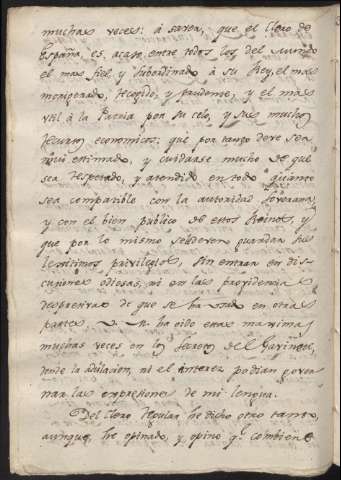 muchas veces: à saver, que el Clero de
España, es, acaso, entre todos los del Mundo
el mas fiel y subordinado à su Rey, el mas
morigerado, recogido, y prudente, y el mas
util à la Patria por su celo, y sus muchos
recursos economicos; que por tanto deve ser
mui estimado, y cuidarse mucho de que
sea respetado, y atendido en todo quanto
sea compatible con la autoridad soverana,
y con el bien publico de estos Reinos, y
que por lo mismo se le deven guardar sus
lexitimos privilegios, sin entrar en dis-
cusiones odiosas, ni en las providencias
despectivas de que se ha usado en otras
partes. V. M. ha oido estas maximas
muchas veces en los secretos del Gavinete,
donde la adulacion, ni el interez podian gover-
nar las expresiones de mi lengua.
Del Clero Regular he dicho otro tanto,
aunque he opinado, y opino q.e combiene